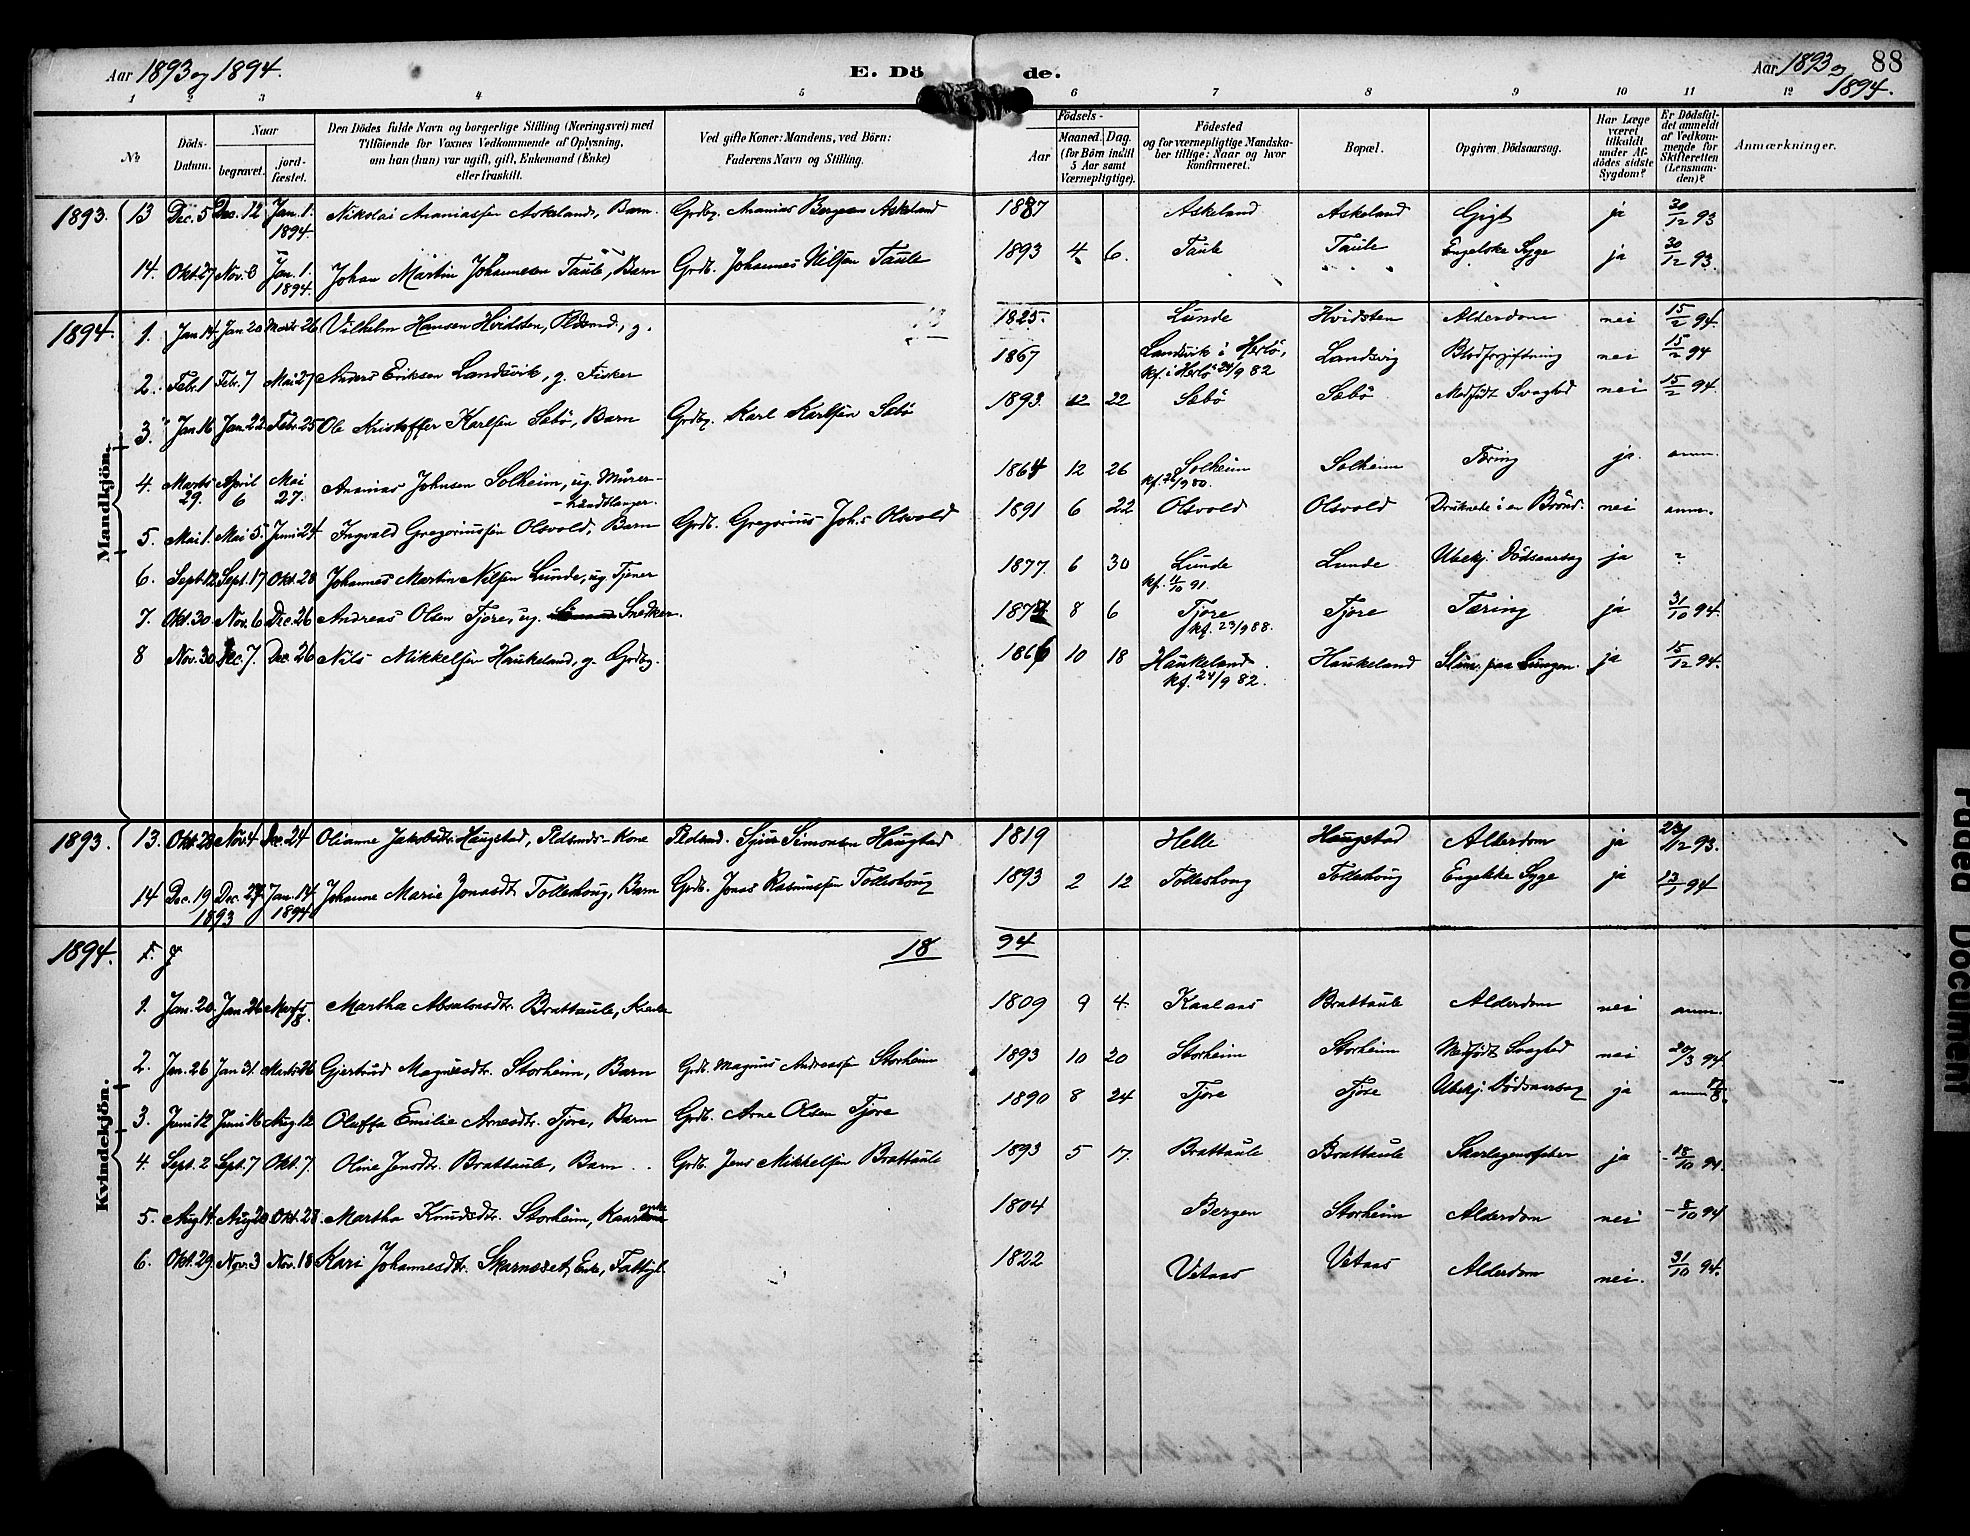 Aar 1893 og 1894. E. Döde. Aar 1893 og 1894. 88
1 2 3 4 5 6 7 8 9 10 11 12
№ Döds-Datum. Naar begravet. jordfæstet. Den Dödes fulde Navn og borgerlige Stilling (Næringsvei) med Tilföiende for Voxnes Vedkommende af Oplysning, om han (hun) var ugift, gift, Enkemand (Enke) eller fraskilt. Ved gifte Koner: Mandens, ved Börn: Faderens Navn og Stilling. Födsels- Aar Maaned. Dag. (for Börn indtil 5 Aar samt Værnepligtige). Födested og for værnepligtige Mandskaber tillige: Naar og hvor konfirmeret. Bopæl. Opgiven Dödsaarsag. Har Læge været tilkaldt under Afdödes sidste Sygdom? Er Dödsfaldet anmeldt af Vedkommende for Skifteretten (Lensmanden)? Anmærkninger.
Mandkjön.
1893. 13 Dec. 5 Dec. 12 Jan. 1. 1894. Nikolai Ananiassen Askeland, Barn. Grdbg. Ananias Bergesen Askeland 1887 Askeland Askeland Gigt ja 30/12 93
14. Okt. 27 Nov. 3 Jan. 1. 1894. Johan Martin Johannesen Taule, Barn Grdb. Johannes Nilsen Taule 1893 4 6. Taule Taule Engelske Syge ja 30/12 93.
1894. 1. Jan 14. Jan 20 Marts 26 Vilhelm Hansen Hvidsten, Pldsmd., g. 1825. Lunde Hvidsten Alderdom nei 15/2 94.
2. Febr. 1 Febr. 7 Mai 27 Anders Eriksen Landsvik, g. Fisker 1867 Landsvik i Herlö, kf. i Herlö 24/9 82 Landsvig Blodforgiftning nei 15/2 94
3. Jan 16 Jan. 22 Febr. 25 Ole Kristoffer Karlsen Sæbö, Barn Grdbg. Karl Karlsen Sæbö 1893. 12 22 Sæbö Sæbö Medfödt Svaghed nei 15/2 94.
4. Marts 29. April 6 Mai 27. Ananias Johnsen Solheim, ug. Murer-Haandlanger. 1864 12 26 Solheim Solheim Tæring ja. anm.
5. Mai 1. Mai 5. Juni 24 Ingvald Gregoriussen Olsvold, Barn Grdb. Gregorius Joh.s Olsvold 1891 6 22 Olsvold Olsvold Druknede i en Brönd. nei anm.
6. Sept. 12 Sept. 17 Okt. 28 Johannes Martin Nilsen Lunde, ug. Tjener 1877. 6 30 Lunde kf. 11/10 91. Lunde Ubekj. Dödsaarsag ja ?
7. Okt. 30. Nov. 6 Dec. 26 Andreas Olsen Tjore, ug. Snedker. 8 6 Tjore kf. 23/9 88. Tjore Tæring ja 31/10 94.
8 Nov. 30 Dec. 7. Dec. 26 Nils Mikkelsen Haukeland, g. Grdbg. 1866 10 18 Haukeland kf. 24/9 82. Haukeland Slim paa Lungen. ja 15/12 94.
Kvindekjön.
1893. 13. Okt. 28 Nov. 4 Dec. 24 Olianne Jakobsdtr. Haugstad, Pldsmds-Kone Pldsmd. Sjur Simonsen Haugstad 1819 Helle Haugstad Alderdom ja 93.
14 Dec. 19 1893 Dec. 27 Jan. 14. 1894. Johanne Marie Jonasdt. Tolleshoug, Barn Grdb. Jonas Rasmussen Tolleshoug 1893 2 12 Tolleshoug Tolleshoug Engelske Syge ja 13/1 94
1894. 18 94
1. Jan. 20. Jan. 26 Marts 18. Martha Absalonsdtr. Brattaule, Kaarenke 1809 9 4. Kaalaas Brattaule Alderdom nei anm.
2. Jan. 26 Jan 31. Marts 26 Gjertrud Magnesdtr. Storheim, Barn Grdb. Magnus Andreassen Storheim 1893 10 20 Storheim Storheim Medfödt Svaghed nei 20/3 94
3. Juni 12 Juni 16 Aug. 12 Oluffa Emilie Arnesdtr. Tjore, Barn Grdb. Arne Olsen Tjore 1890 8 24 Tjore Tjore Ubekj. Dödsaarsag ja anm
4. Sept. 2 Sept. 7 Okt. 7. Oline Jensdtr. Brattaule, Barn Grdb. Jens Mikkelsen Brattaule 1893 5 17. Brattaule Brattaule Skarlagensfeber ja 18/10 94.
5. Aug 14. Aug 20 Okt. 28. Martha Knudsdtr. Storheim, Kaarenke 1804 Bergen Storheim Alderdom nei 8/10 94
6. Okt. 29. Nov. 3 Nov. 18 Kari Johannesdtr. Skarnæset, Enke, Fattigl. 1822 Vetaas Vetaas Alderdom nei. 31/10 94.
Faded Document